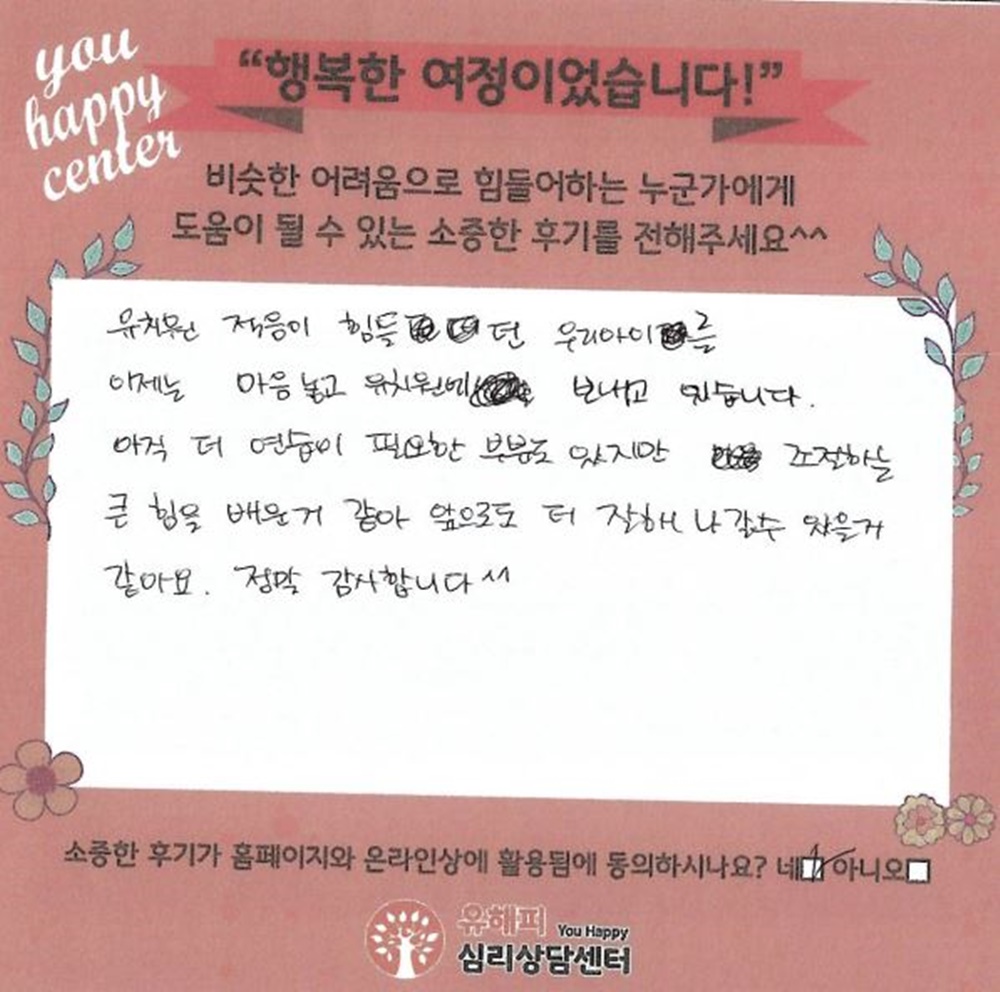 you
happy
center
“행복한 여정이었습니다!”
비슷한 어려움으로 힘들어하는 누군가에게
도움이 될 수 있는 소중한 후기를 전해주세요^^
유치원 적응이 힘들던 우리아이를
이제는 마음놓고 유치원에 보내고 있습니다.
아직 더 연습이 필요한 부분도 있지만 조절하는
큰 힘을 배운거 같아 앞으로도 더 잘해 나갈수 있을거
같아요. 정말 감사합니다 ^^
소중한 후기가 홈페이지와 온라인상에 활용됨에 동의하시나요? 네 아니오
유해피 You Happy
심리상담센터